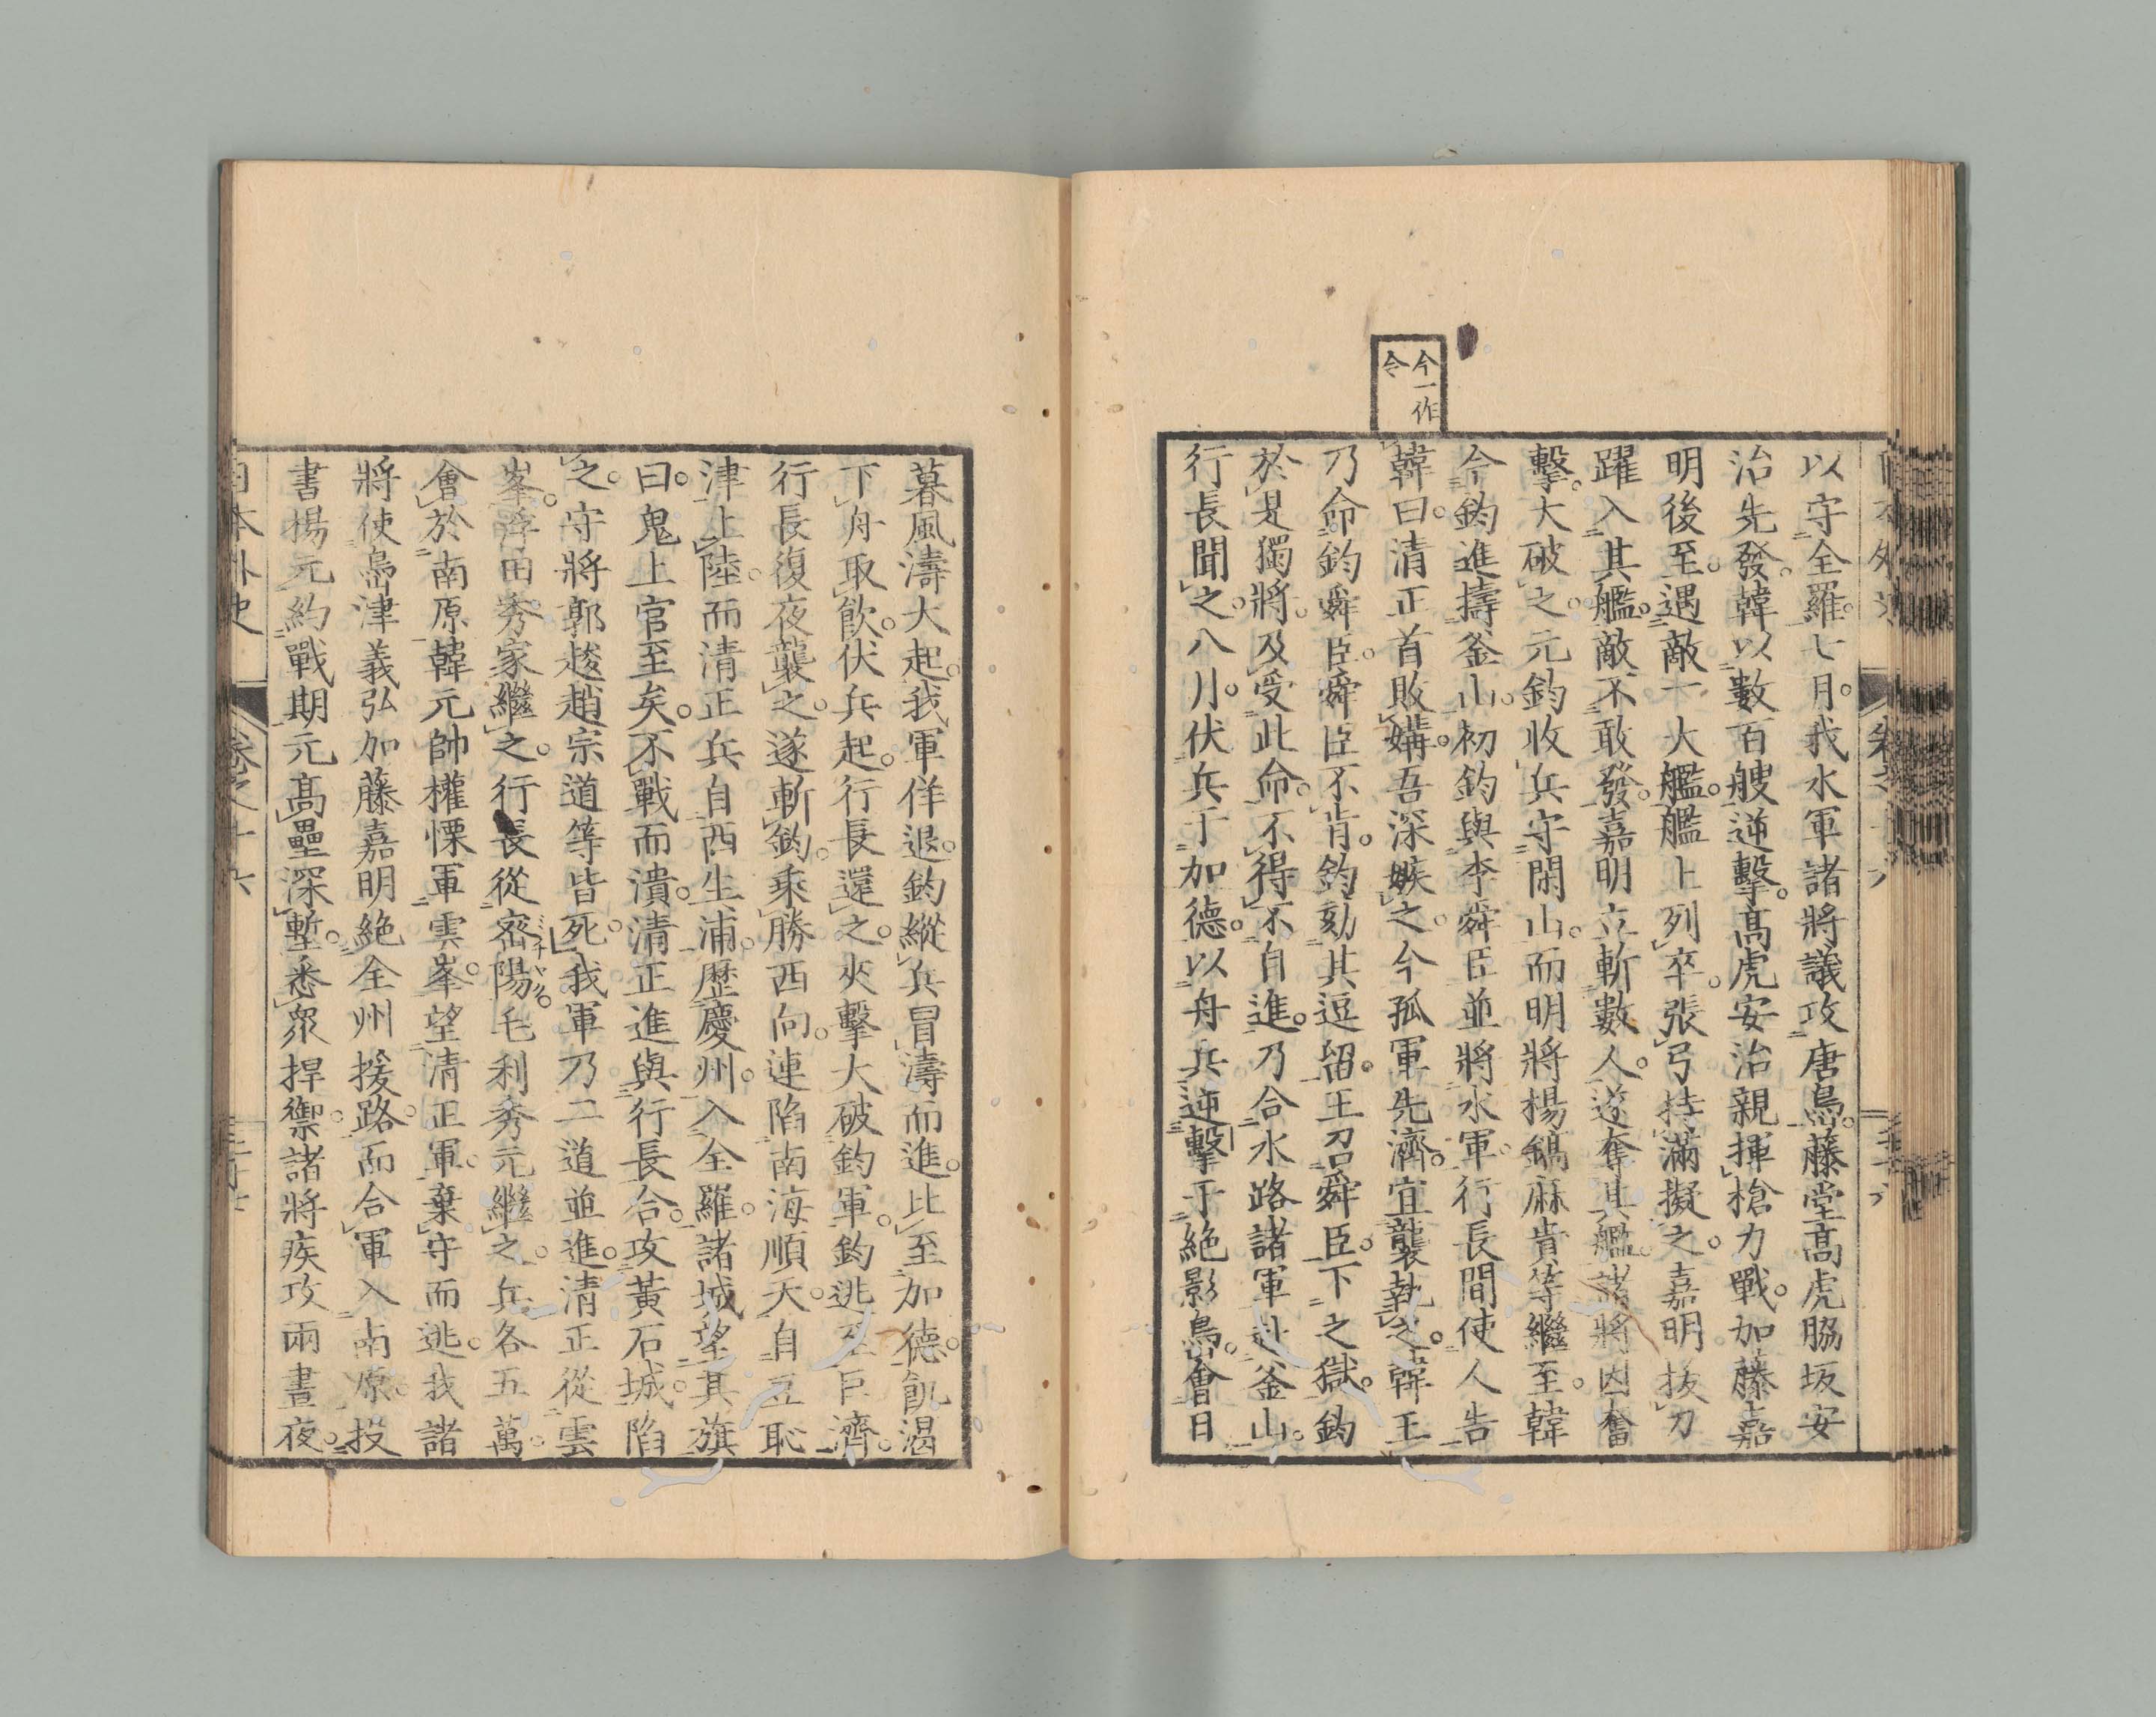 今一作
令
以守全羅。七月。我水軍諸將議攻唐島。藤堂高虎脇坂安
治先發。韓以數百艘逆擊。高虎安治親揮槍力戰。加藤嘉
明後至。遇敵一大艦。艦上列卒。張弓持滿擬之。嘉明拔刀
躍入其艦。敵不敢發。嘉明立斬數人。遂奪其艦。諸將因奮
擊。大破之。元鈞收兵守閑山。而明將楊鎬麻貴等繼至。韓
令鈞進擣釜山。初鈞與李舜臣並將水軍。行長間使人告
韓曰。清正首敗媾。吾深嫉之。今孤軍先濟。宜襲執之。韓王
乃命鈞舜臣。舜臣不肯。鈞劾其逗留。王召舜臣。下之獄。鈞
於是獨將。及受此命。不得不自進。乃合水路諸軍赴釜山。
行長聞之。八月。伏兵于加德。以舟兵逆擊于絕影島。會日
暮風濤大起。我軍佯退。鈞縱兵冒濤而進。比至加德。飢渴
下舟取飲。伏兵起。行長還之。夾擊大破鈞軍。鈞逃至巨濟。
行長復夜襲之。遂斬鈞。乘勝西向。連陷南海順天。自豆恥
津上陸。而清正兵自西生浦。歷慶州。入全羅。諸城望其旗
曰。鬼上官至矣。不戰而潰。清正進與行長合。攻黃石城。陷
之。守將郭䞭趙宗道等皆死。我軍乃二道並進。清正從雲
峯。浮田秀家繼之。行長從密陽。毛利秀元繼之。兵各五萬。
會於南原。韓元帥權慄軍雲峯。望清正軍。棄守而逃。我諸
將使島津義弘加藤嘉明絕全州援路。而合軍入南原。投
書揚元約戰期。元高壘深塹。悉眾捍禦。諸將疾攻兩晝夜。
日本外史 卷之十六